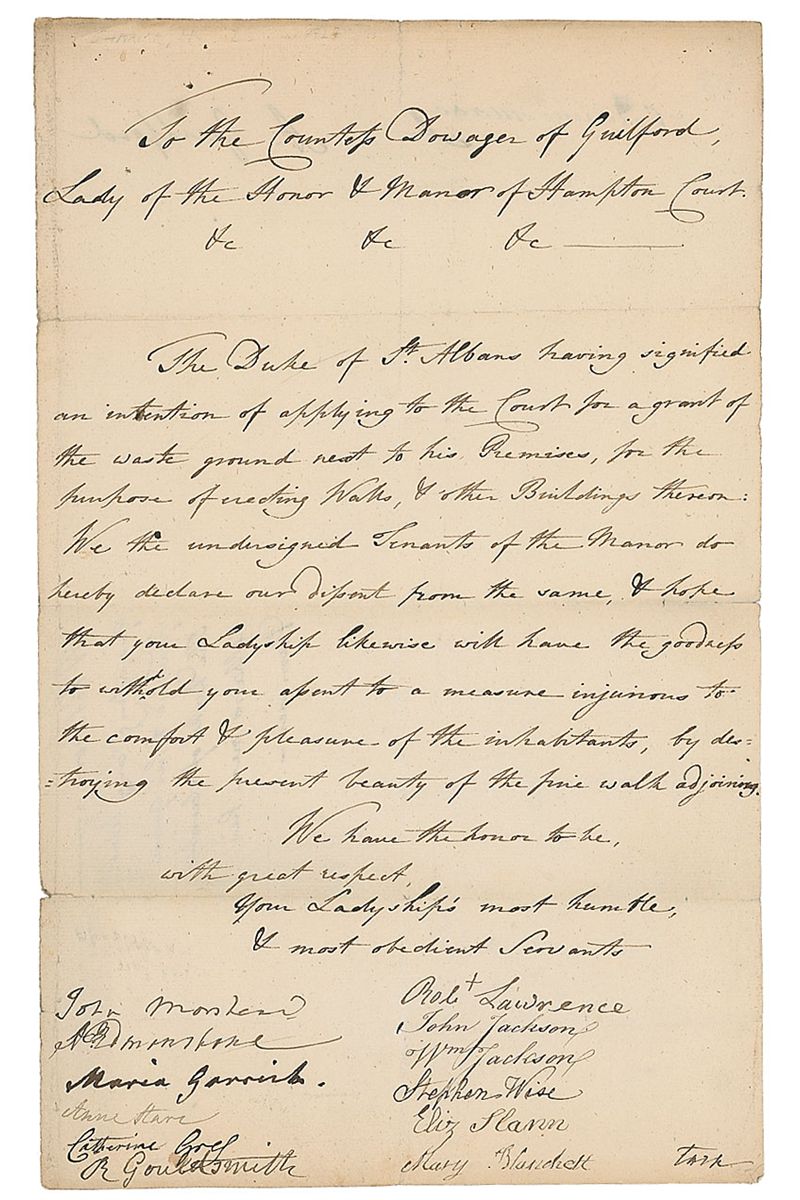 To the Countess Dowager of Guilford,
Lady of the Honor & Manor of Hampton Court.
&c &c &c
The Duke of St. Albans having signified
an intention of applying to the Court for a grant of
the waste ground next to his Premises, for the
purpose of erecting Walls, & other Buildings thereon:
We the undersigned Tenants of the Manor do
hereby declare our dissent from the same, & hope
that your Ladyship likewise will have the goodness
to withhold your assent to a measure injurious to
the comfort & pleasure of the inhabitants, by des=
=troying the present beauty of the fine walk adjoining.
We have the honor to be,
with great respect,
Your Ladyship's most humble,
& most obedient Servants
John Morshead
Edmonstone
Maria Garrick.
Anne Hare
Catherine
R Gouldsmith
Robt Lawrence
John Jackson
Wm Jackson
Stephen Wise
Eliz Slann
Mary Blanchett
turn